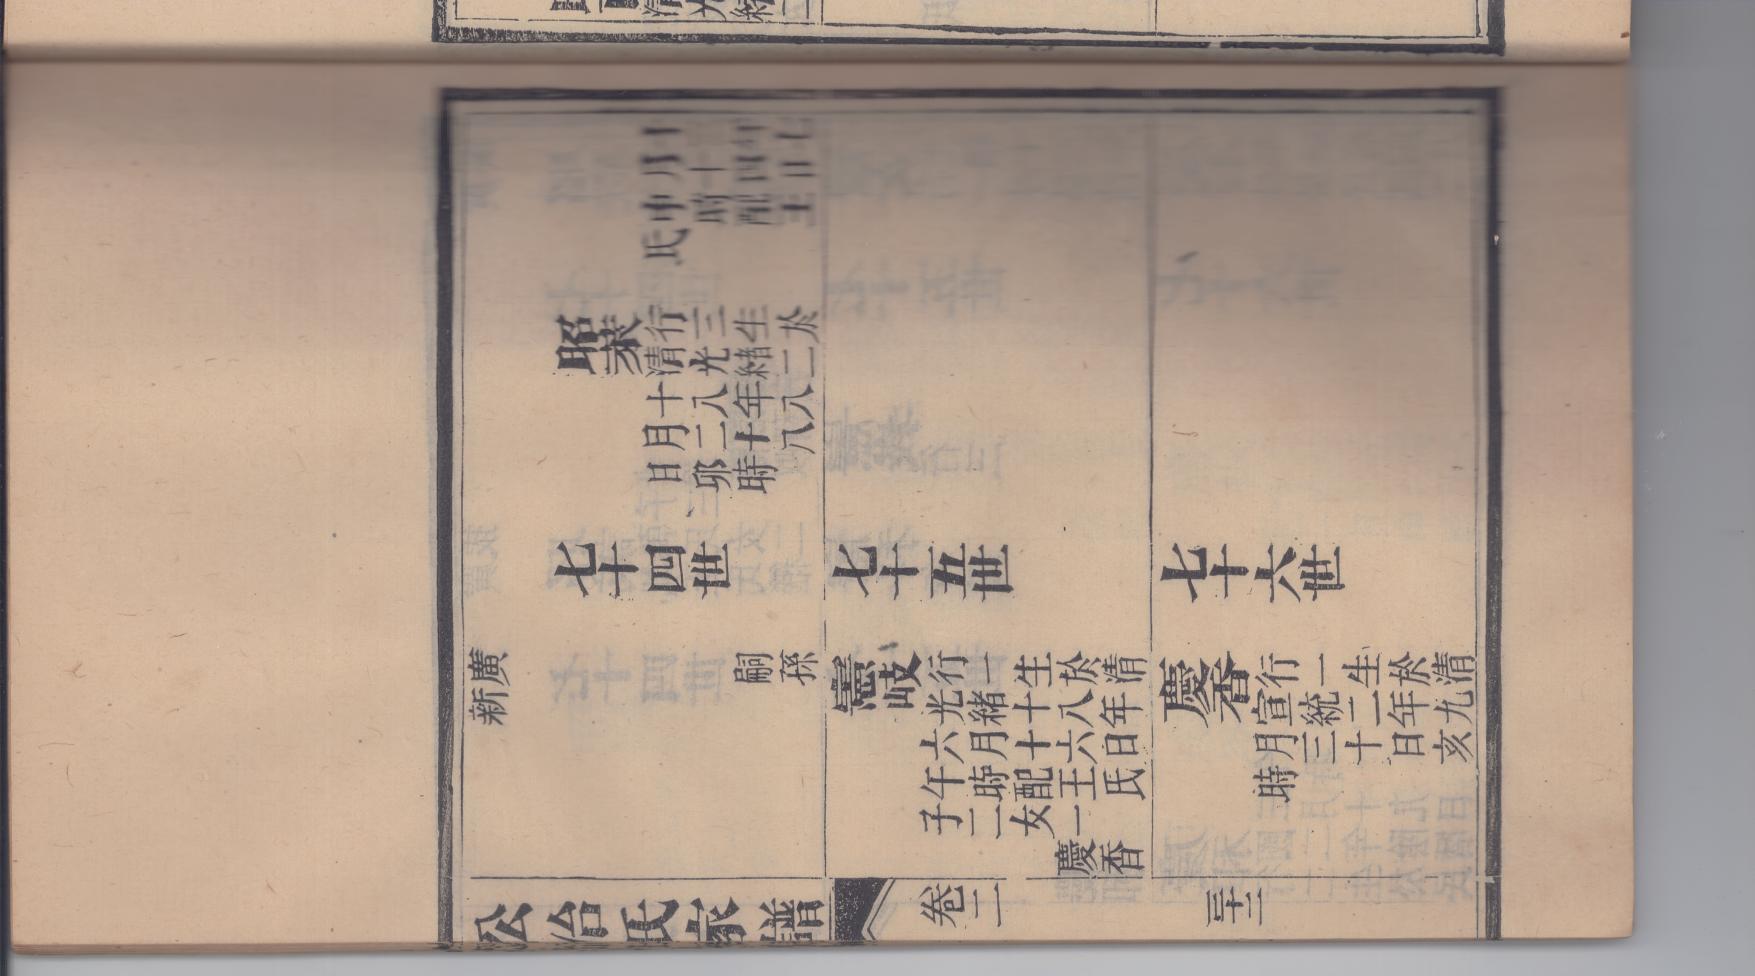 月十四日
申時配王
氏
昭裘
行三生於
清光緒二
十八年八
月二十八
日卯時
七十四世
七十五世
七十六世
廣
新
嗣孫
憲岐
行一生於清
光緒十八年
六月十六日
午時配王氏
子二女一
慶香
慶香
行一生於清
宣統二年九
月三十日亥
時
公台氏家譜
卷二
三十二